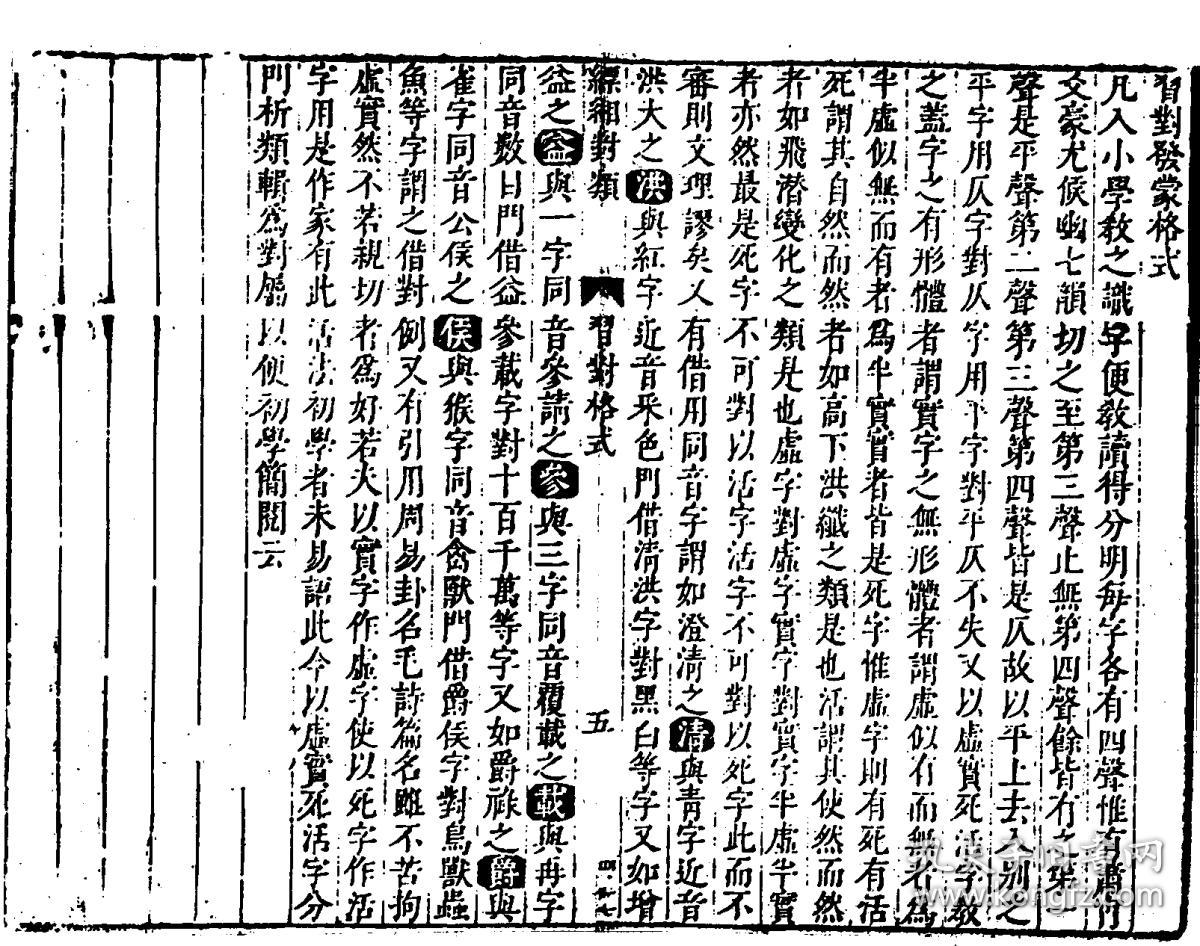 習對發蒙格式
凡入小學教之識字便教讀得分明每字各有四聲惟有蕭肴
爻豪尤候幽七韻切之至第三聲止無第四聲餘皆有之第一
聲是平聲第二聲第三聲第四聲皆是仄故以平上去入別之
平字用仄字對仄字用平字對平仄不失又以虛實死活字教
之蓋字之有形體者謂實字之無形體者謂虛似有而無者為
半虛似無而有者為半實實者皆是死字惟虛字則有死有活
死謂其自然而然者如高下洪纖之類是也活謂其使然而然
者如飛潛變化之類是也虛字對虛字實字對實字半虛半實
者亦然最是死字不可對以活字活字不可對以死字此而不
審則文理謬矣又有借用同音字謂如澄清之清與青字近音
洪大之洪與紅字近音采色門借清洪字對黑白等字又如增
縹緗對類 習對格式 五
益之益與一字同音參請之參與三字同音覆載之載與再字
同音數目門借益參載字對十百千萬等字又如爵祿之爵與
雀字同音公侯之侯與猴字同音禽獸門借爵侯字對鳥獸蟲
魚等字謂之借對例又有引用周易卦名毛詩篇名雖不苦拘
虛實然不若親切者為好若夫以實字作虛字使以死字作活
字用是作家有此活法初學者未易語此今以虛實死活字分
門析類輯為對屬以便初學簡閱云
www.kongfz.com